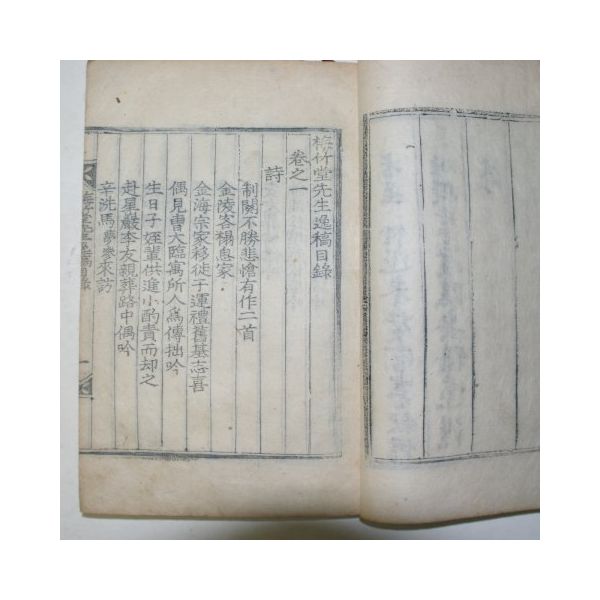 梅竹堂先生逸稿目錄
卷之一
詩
制闋不勝悲愴有作二首
金陵客榻思家
金海宗家移徙于運禮舊基志喜
偶見曹大臨寓所人爲傳拙吟
生日子姪輩供進小酌責而却之
赴星巖李友親葬路中偶吟
辛洗馬夢參來訪